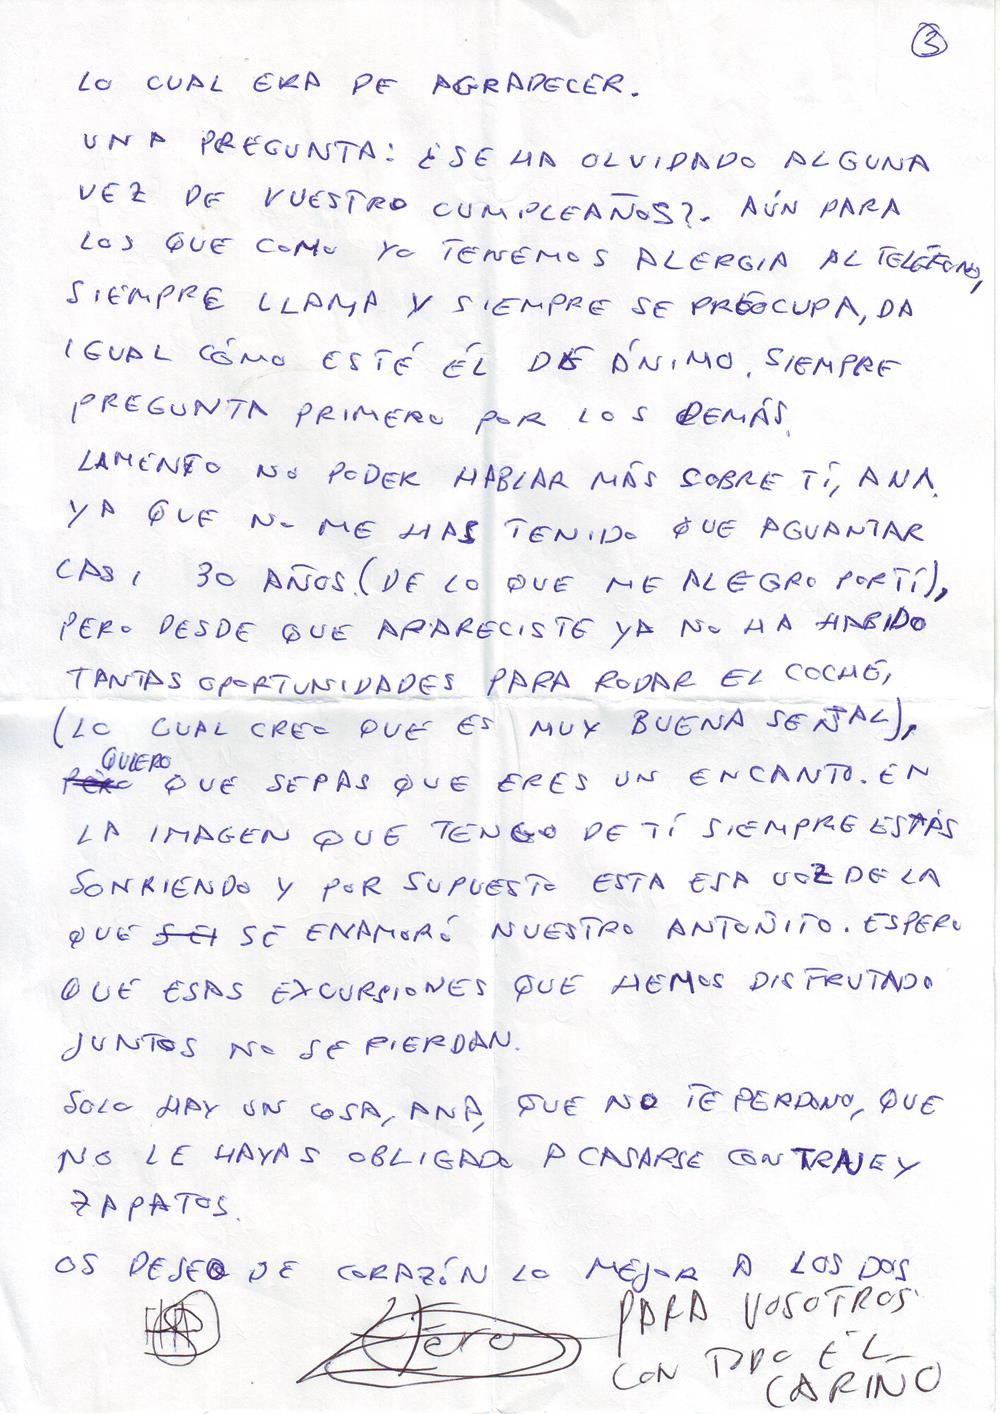 3
LO CUAL ERA DE AGRADECER.
UNA PREGUNTA: ¿SE HA OLVIDADO ALGUNA
VEZ DE VUESTRO CUMPLEAÑOS?. AÚN PARA
LOS QUE COMO YO TENEMOS ALERGIA AL TELÉFONO,
SIEMPRE LLAMA Y SIEMPRE SE PREOCUPA, DA
IGUAL CÓMO ESTÉ ÉL DE ÁNIMO, SIEMPRE
PREGUNTA PRIMERO POR LOS DEMÁS.
LAMENTO NO PODER HABLAR MÁS SOBRE TÍ, ANA.
YA QUE NO ME HAS TENIDO QUE AGUANTAR
CASI 30 AÑOS. (DE LO QUE ME ALEGRO POR TÍ),
PERO DESDE QUE APARECISTE YA NO HA HABIDO
TANTAS OPORTUNIDADES PARA RODAR EL COCHE,
(LO CUAL CREO QUE ES MUY BUENA SEÑAL),
QUIERO
PERO QUE SEPAS QUE ERES UN ENCANTO. EN
LA IMAGEN QUE TENGO DE TÍ SIEMPRE ESTÁS
SONRIENDO Y POR SUPUESTO ESTA ESA VOZ DE LA
QUE SE ENAMORÓ NUESTRO ANTOÑITO. ESPERO
QUE ESAS EXCURSIONES QUE HEMOS DISFRUTADO
JUNTOS NO SE PIERDAN.
SOLO HAY UN COSA, ANA, QUE NO TE PERDONO, QUE
NO LE HAYAS OBLIGADO A CASARSE CON TRAJE Y
ZAPATOS.
OS DESEO DE CORAZÓN LO MEJOR A LOS DOS.
PARA VOSOTROS
CON TODO EL
CARIÑO